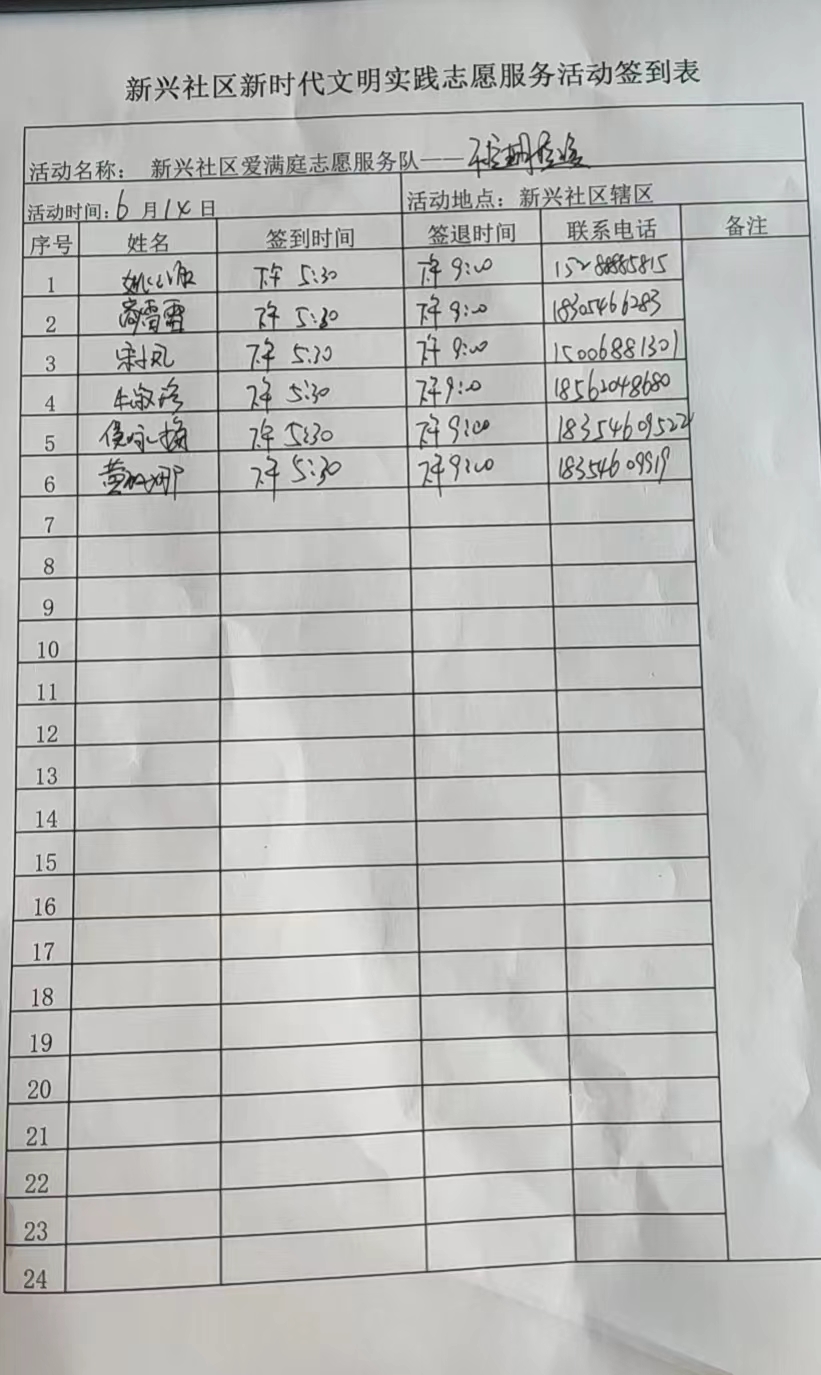 新兴社区新时代文明实践志愿服务活动签到表
活动名称： 新兴社区爱满庭志愿服务队——
活动时间：6 月 14 日 活动地点：新兴社区辖区
序号 姓名 签到时间 签退时间 联系电话 备注
1 下午 5:30 下午 9:00 15288885815
2 高雪雷 下午 5:30 下午 9:00 18305466283
3 下午 5:30 下午 9:00 15006881301
4 牛淑珍 下午 5:30 下午 9:00 18562048680
5 侯咏梅 下午 5:30 下午 9:00
6 黄娜娜 下午 5:30 下午 9:00 18354609919
7
8
9
10
11
12
13
14
15
16
17
18
19
20
21
22
23
24